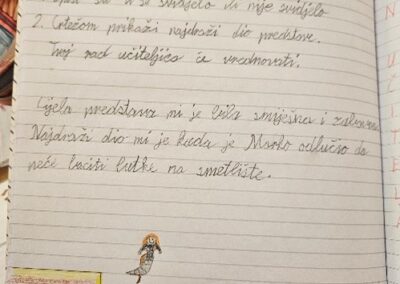 ti se svidjelo ili nije svidjelo
2. Crtežom prikaži najdraži dio predstave.
Tvoj rad učiteljica će vrednovati.
Cijela predstava mi je bila smiješna i zabavna
Najdraži dio mi je kada je Marko odlučio da
neće baciti lutke na smetlište.
N
U
Č
I
T
E
L